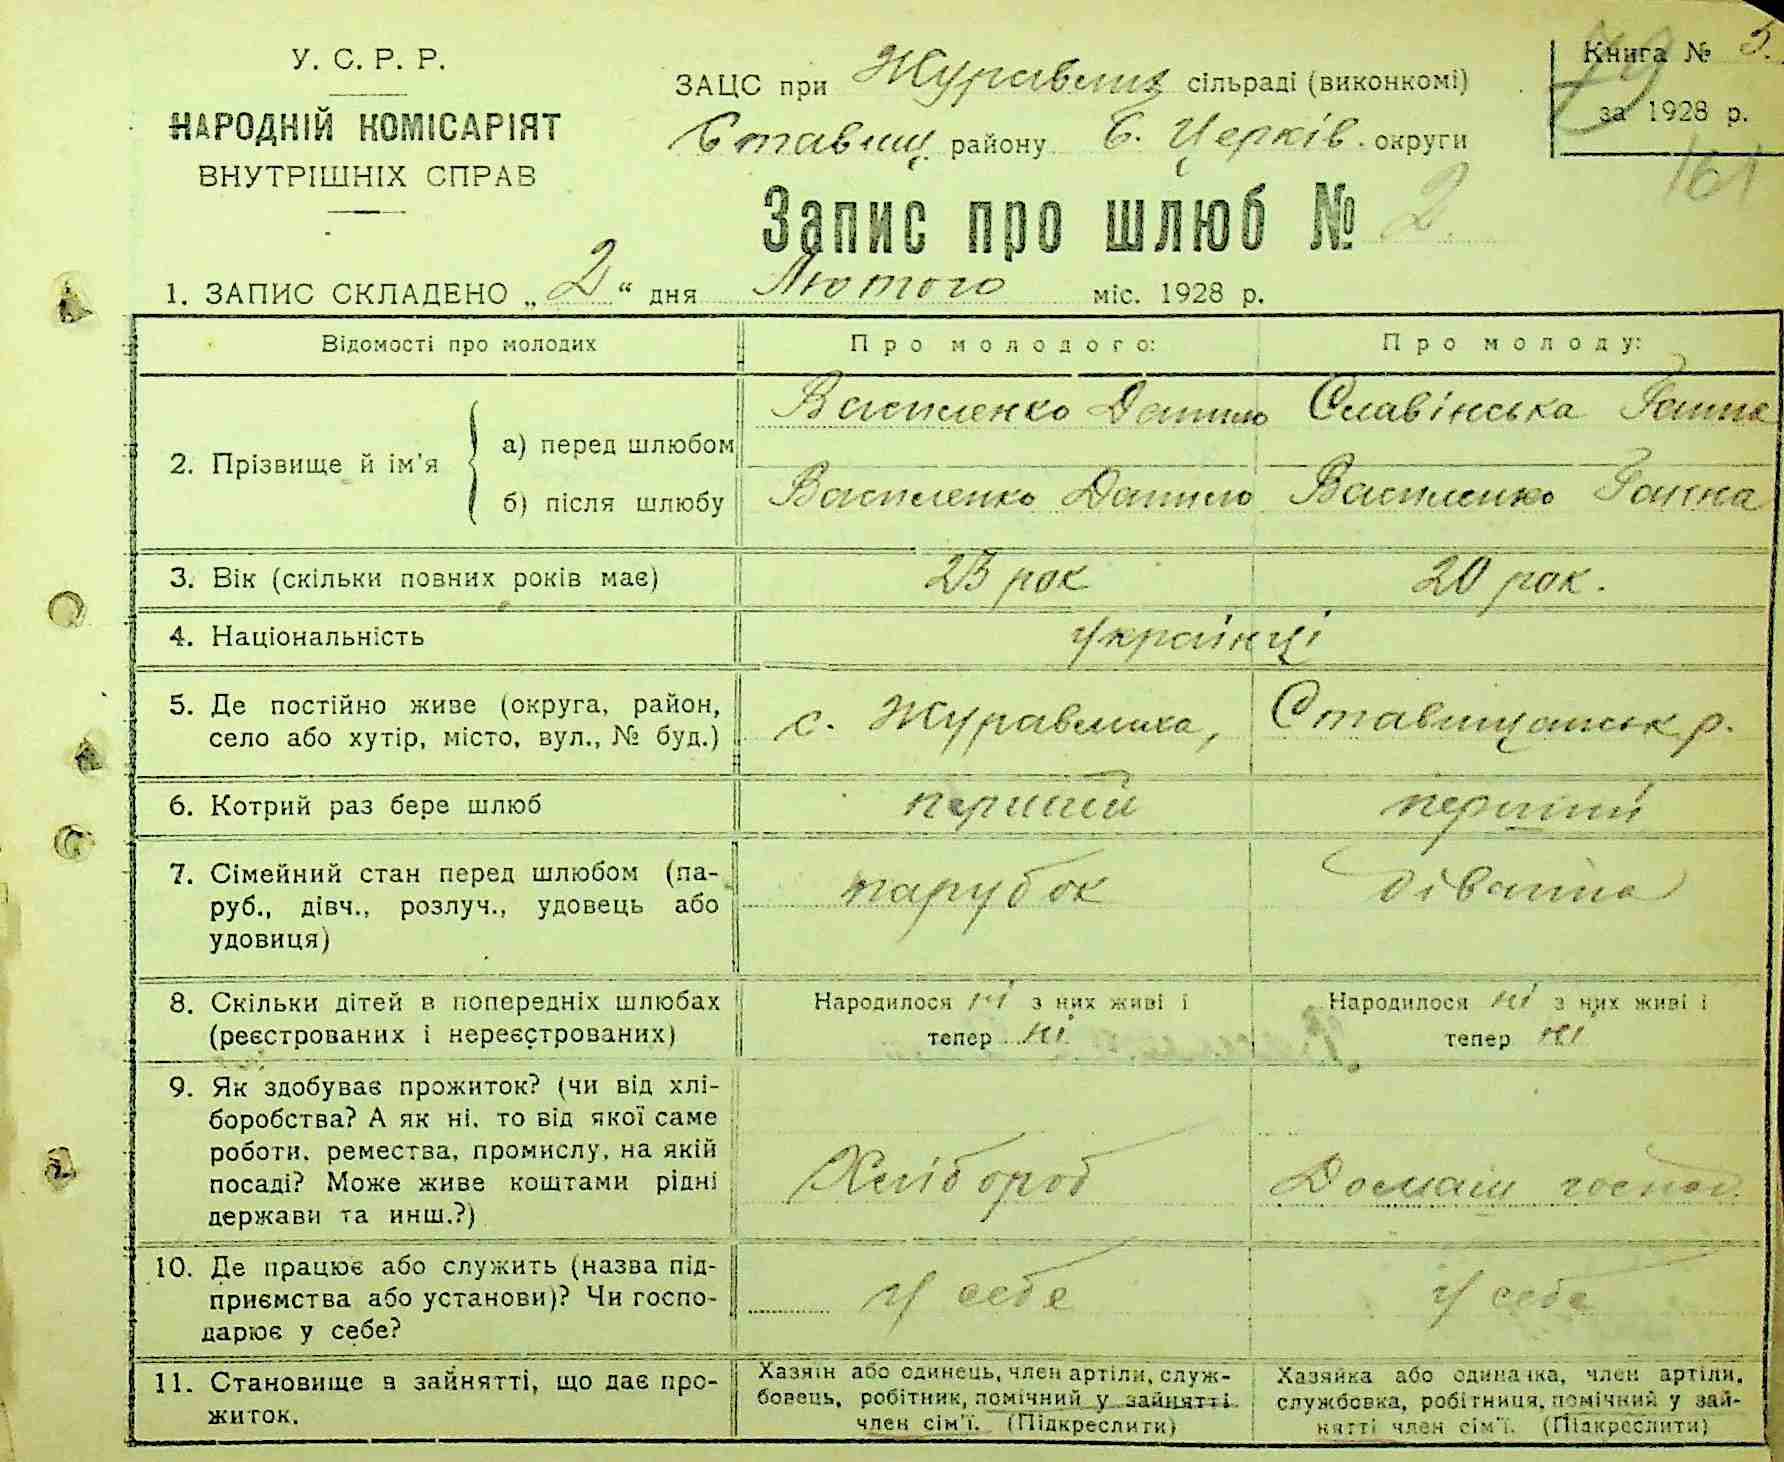 У. С. Р. Р.
НАРОДНІЙ КОМІСАРІЯТ
ВНУТРІШНІХ СПРАВ
ЗАЦС при Журавлиз сільраді (виконкомі)
Ставищ. району Б. Церків. округи
Книга № 5.
за 1928 р.
79
161
Запис про шлюб № 2.
1. ЗАПИС СКЛАДЕНО „ 2 “ дня Лютого міс. 1928 р.
Відомості про молодих Про молодого: Про молоду:
2. Прізвище й ім’я
а) перед шлюбом Василенко Данило Славінська Ганна
б) після шлюбу Василенко Данило Василенко Ганна
3. Вік (скільки повних років має) 23 рок 20 рок.
4. Національність Українці
5. Де постійно живе (округа, район,
село або хутір, місто, вул., № буд.) с. Журавлиха, Ставищанськ р.
6. Котрий раз бере шлюб перший перший
7. Сімейний стан перед шлюбом (па-
руб., дівч., розлуч., удовець або
удовиця)
парубок дівчина
8. Скільки дітей в попередніх шлюбах
(реєстрованих і нереєстрованих)
Народилося ні з них живі і
тепер ні
Народилося ні з них живі і
тепер ні
9. Як здобуває прожиток? (чи від хлі-
боробства? А як ні, то від якої саме
роботи, ремества, промислу, на якій
посаді? Може живе коштами рідні
держави та инш.?)
Хлібороб Домаш господ.
10. Де працює або служить (назва під-
приємства або установи)? Чи госпо-
дарює у себе?
У себе У себе
11. Становище в зайнятті, що дає про-
житок.
Хазяїн або одинець, член артіли, служ-
бовець, робітник, помічний у зайнятті
член сім’ї. (Підкреслити)
Хазяйка або одиначка, член артіли,
службовка, робітниця, помічний у зай-
нятті член сім’ї. (Підкреслити)